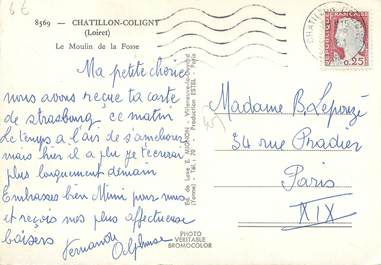 6€
8569 - CHATILLON-COLIGNY
(Loiret)
Le Moulin de la Fosse
Ma petite chérie
nous avons reçue ta carte
de strasbourg ce matin
Le temps a l'air de s'améliorer
mais hier il a plu je t'écrirai
plus longuement demain
Embrasses bien Mimi pour nous
et reçois nos plus affectueux
baisers
Fernande Alphonse
Ed. de Luxe E. MIGNON - Villeneuve-la-Guyard
(Yonne) - Tél. 70 - Production ESTEL - Paris
PHOTO
VERITABLE
BROMOCOLOR
FRANÇAISE
0,25
Madame B. Lepouzé
34 rue Pradier
Paris
XIX